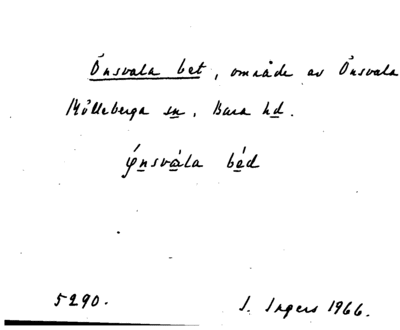 Önsvala bet, område av Önsvala
Mölleberga sn, Bara hd.
bèd
5290.
I. Ingers 1966.